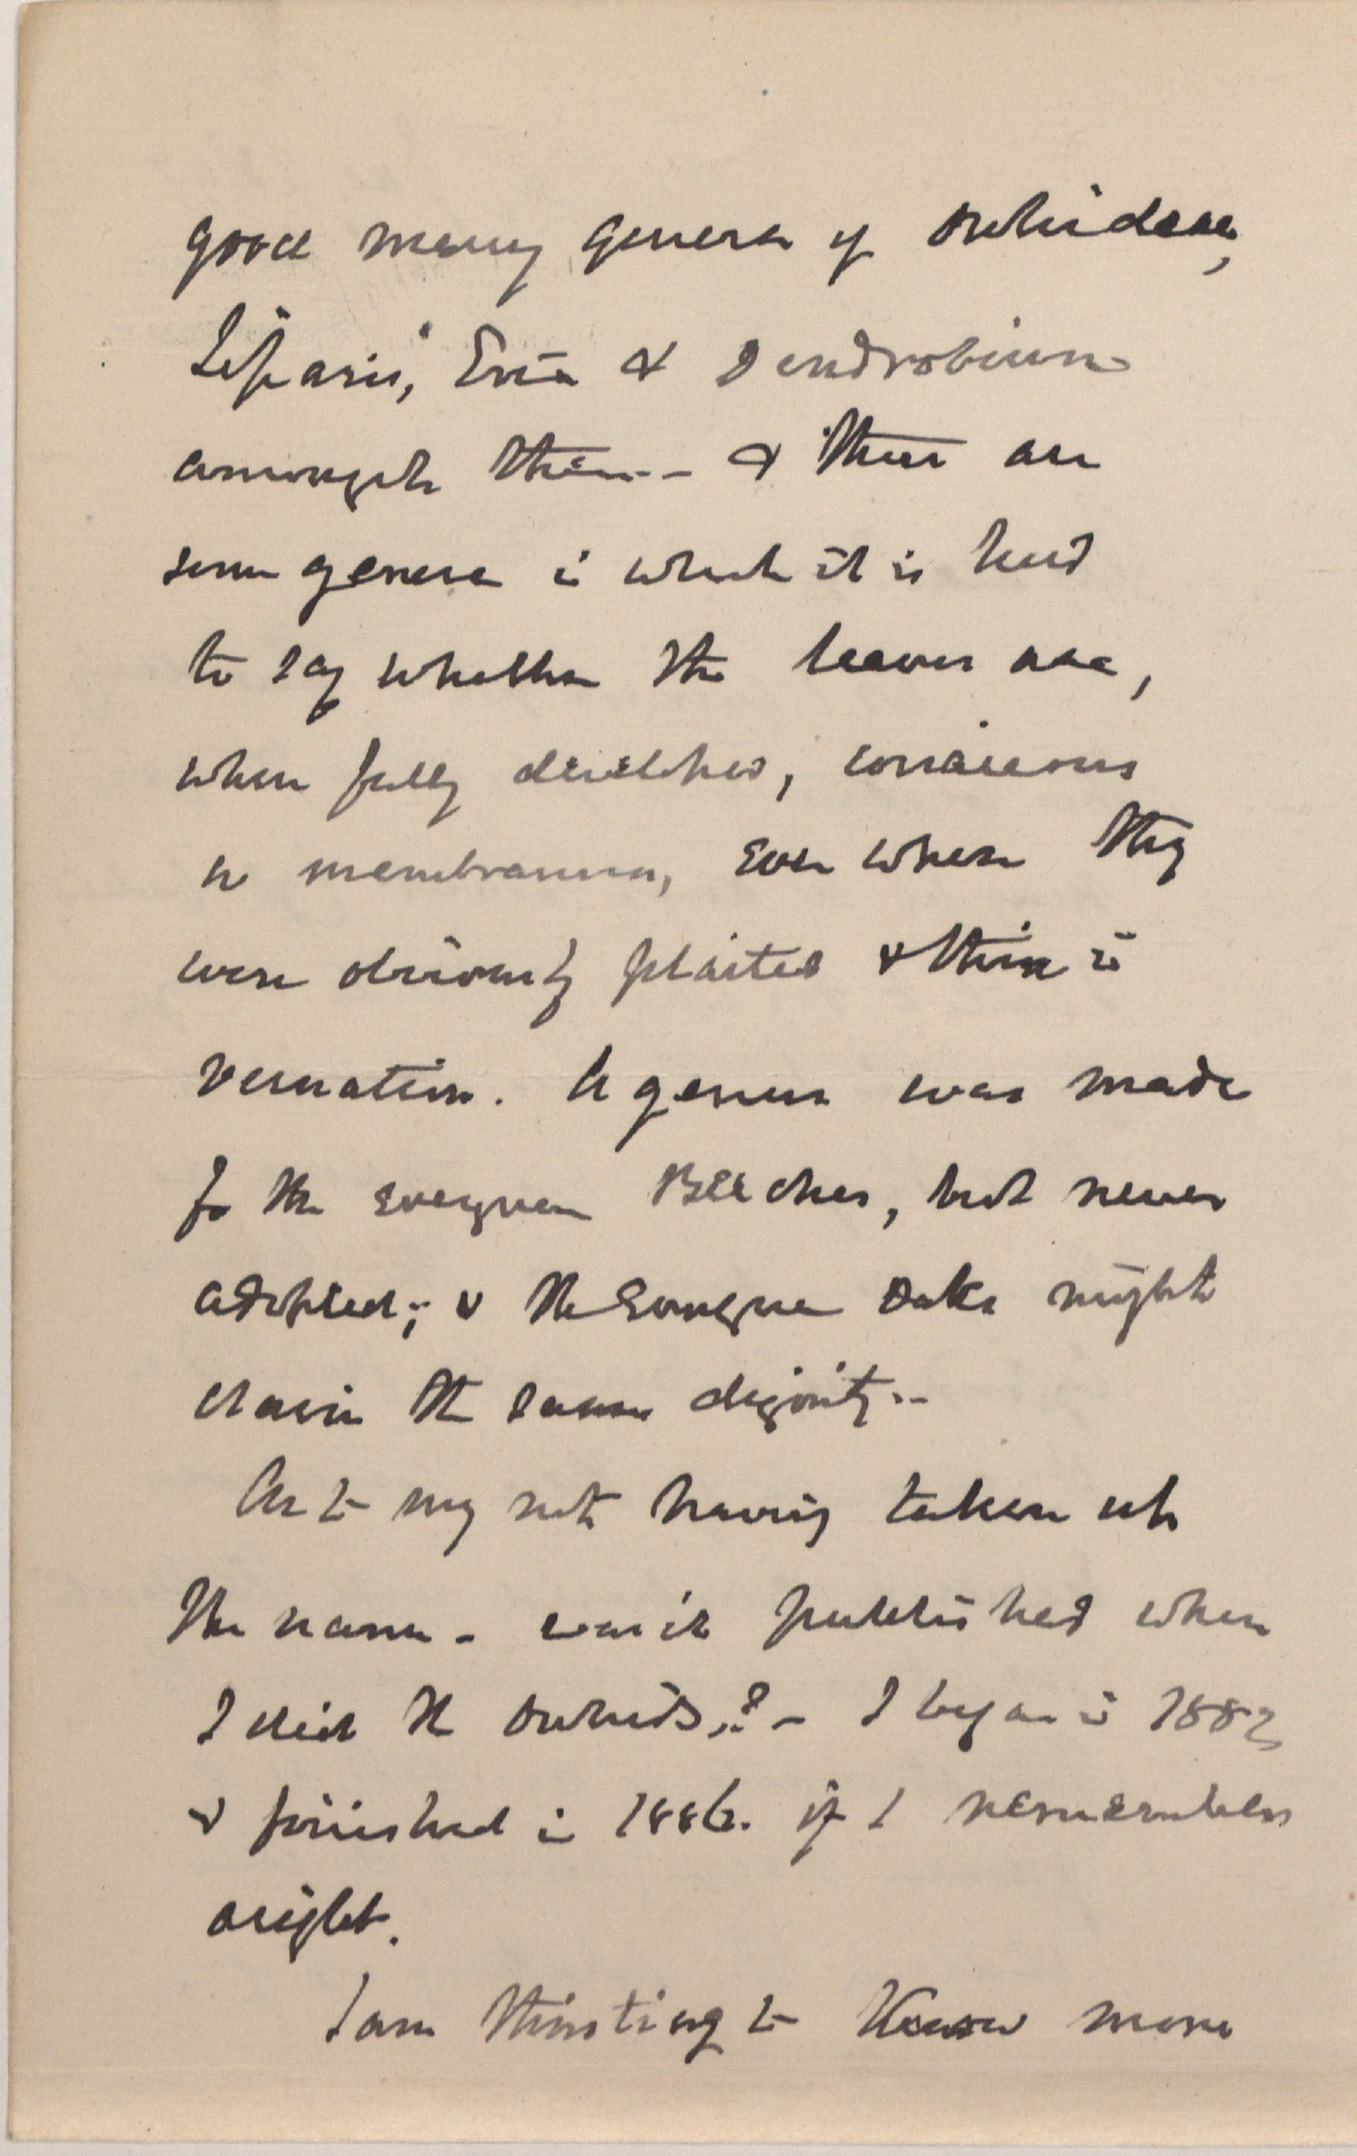 good many genera of Orchideae,
Liparis, Eria & Dendrobium
amongst them - & there are
some genera in which it is hard
to say whether the leaves are,
when fully developed, coriaceous
or membranous, even when they
were obviously plaited & thin in
vernation. A genus was made
for the evergreen Beeches, but never
adopted; & the Evergreen Oaks might
claim the same dignity --
As to my not having taken up
the name - was it published when
I did the Orchids? - I began in 1883
& finished in 1886. if I remember
aright.
I am thirsting to know more